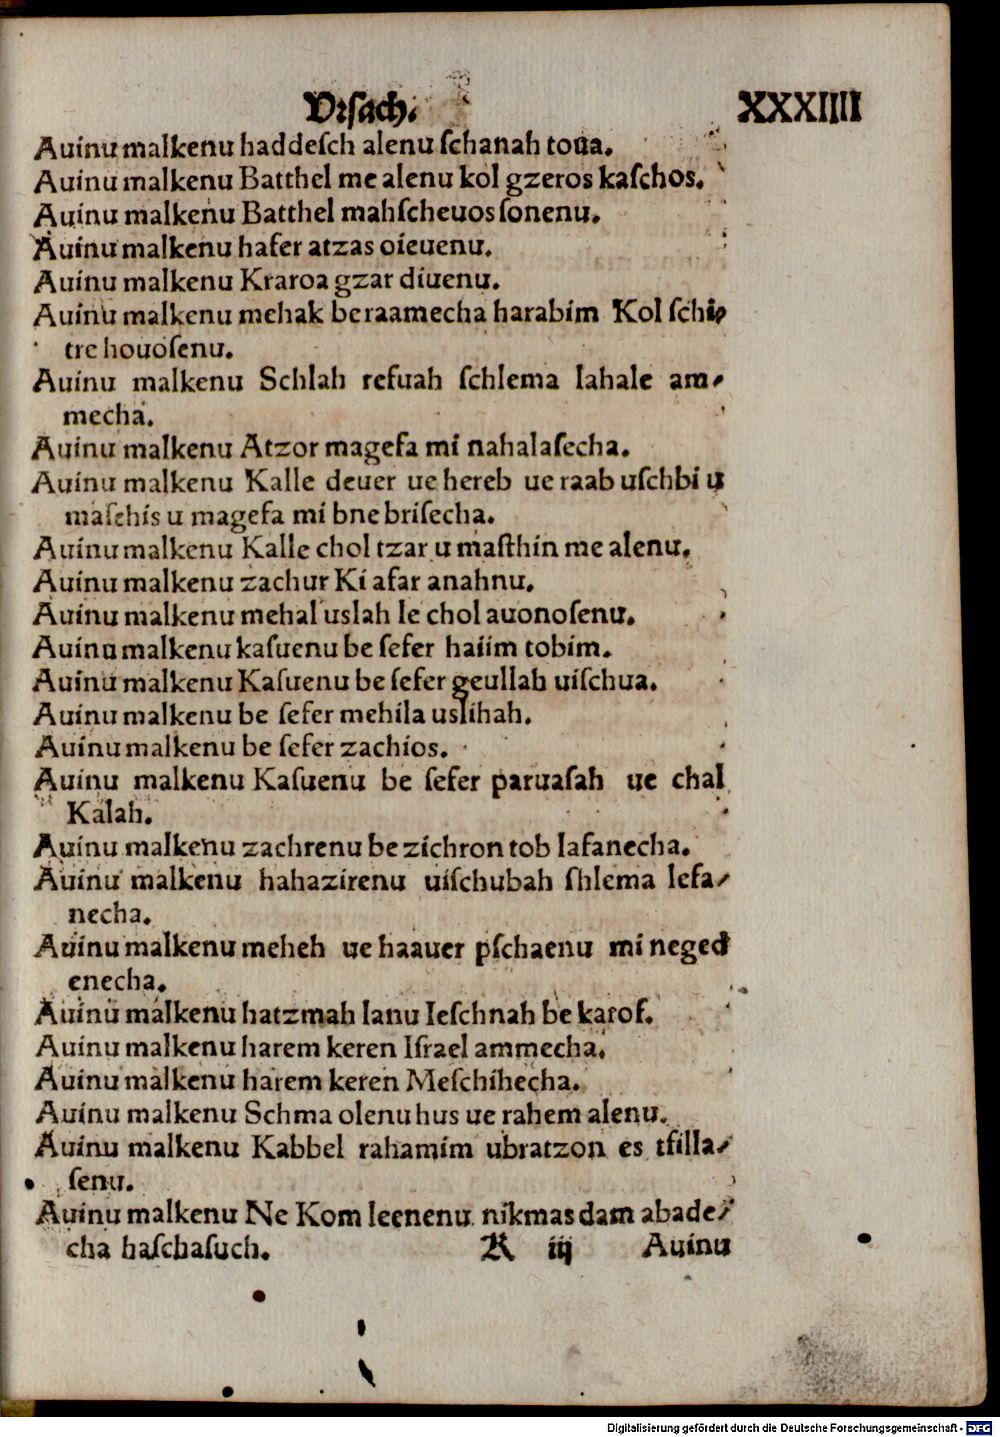 Vrſach. XXXIIII
Auinu malkenu haddeſch alenu ſchanah toua.
Auinu malkenu Batthel me alenu kol gzeros kaſchos.
Auinu malkenu Batthel mahſcheuos ſonenu.
Auinu malkenu hafer atzas oieuenu.
Auinu malkenu Kraroa gzar diuenu.
Auinu malkenu mehak beraamecha harabim Kol ſchi⸗
tre houoſenu.
Auinu malkenu Schlah refuah ſchlema lahale am⸗
mecha.
Auinu malkenu Atzor magefa mi nahalaſecha.
Auinu malkenu Kalle deuer ue hereb ue raab uſchbi u
maſchis u magefa mi bne briſecha.
Auinu malkenu Kalle chol tzar u maſthin me alenu.
Auinu malkenu zachur Ki afar anahnu.
Auinu malkenu mehal uslah le chol auonoſenu.
Auinu malkenu kaſuenu be ſefer haiim tobim.
Auinu malkenu Kaſuenu be ſefer geullah uiſchua.
Auinu malkenu be ſefer mehila uslihah.
Auinu malkenu be ſefer zachios.
Auinu malkenu Kaſuenu be ſefer paruaſah ue chal
Kalah.
Auinu malkenu zachrenu be zichron tob lafanecha.
Auinu malkenu hahazirenu uiſchubah ſhlema lefa⸗
necha.
Auinu malkenu meheh ue haauer pſchaenu mi neged
enecha.
Auinu malkenu hatzmah lanu Ieſchnah be karof.
Auinu malkenu harem keren Iſrael ammecha.
Auinu malkenu harem keren Meſchihecha.
Auinu malkenu Schma olenu hus ue rahem alenu.
Auinu malkenu Kabbel rahamim ubratzon es tfilla⸗
ſenu.
Auinu malkenu Ne Kom leenenu nikmas dam abade⸗
cha haſchaſuch. K iij Auinu
Digitalisierung gefördert durch die Deutsche Forschungsgemeinschaft - DFG